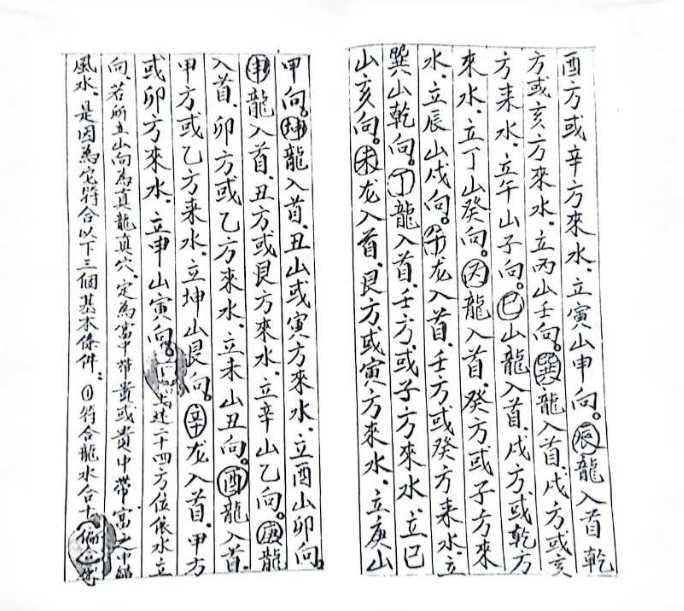 酉方或辛方來水、立寅山申向。辰龍入首乾
方或亥方來水、立丙山壬向。巽龍入首、戌方或亥
方來水、立午山子向。巳山龍入首、戌方或乾方
來水、立丁山癸向。丙龍入首、癸方或子方來
水、立辰山戌向。午龙入首、壬方或癸方来水、立
巽山乾向。丁龍入首、壬方或子方來水、立巳
山亥向。未龙入首、艮方或寅方來水、立庚山
甲向。坤龍入首、丑山或寅方來水、立酉山卯向。
申龍入首、丑方或艮方來水、立辛山乙向。庚龍
入首、卯方或乙方來水、立未山丑向。酉龍入首、
甲方或乙方来水、立坤山艮向。辛龙入首、甲方
或卯方來水、立申山寅向。述二十四方位依水立
向、若所立山向為真龍真穴、定為富中带貴或貴中帶富之
風水、是因為它符合以下三個基本條件：①符合龍水合十